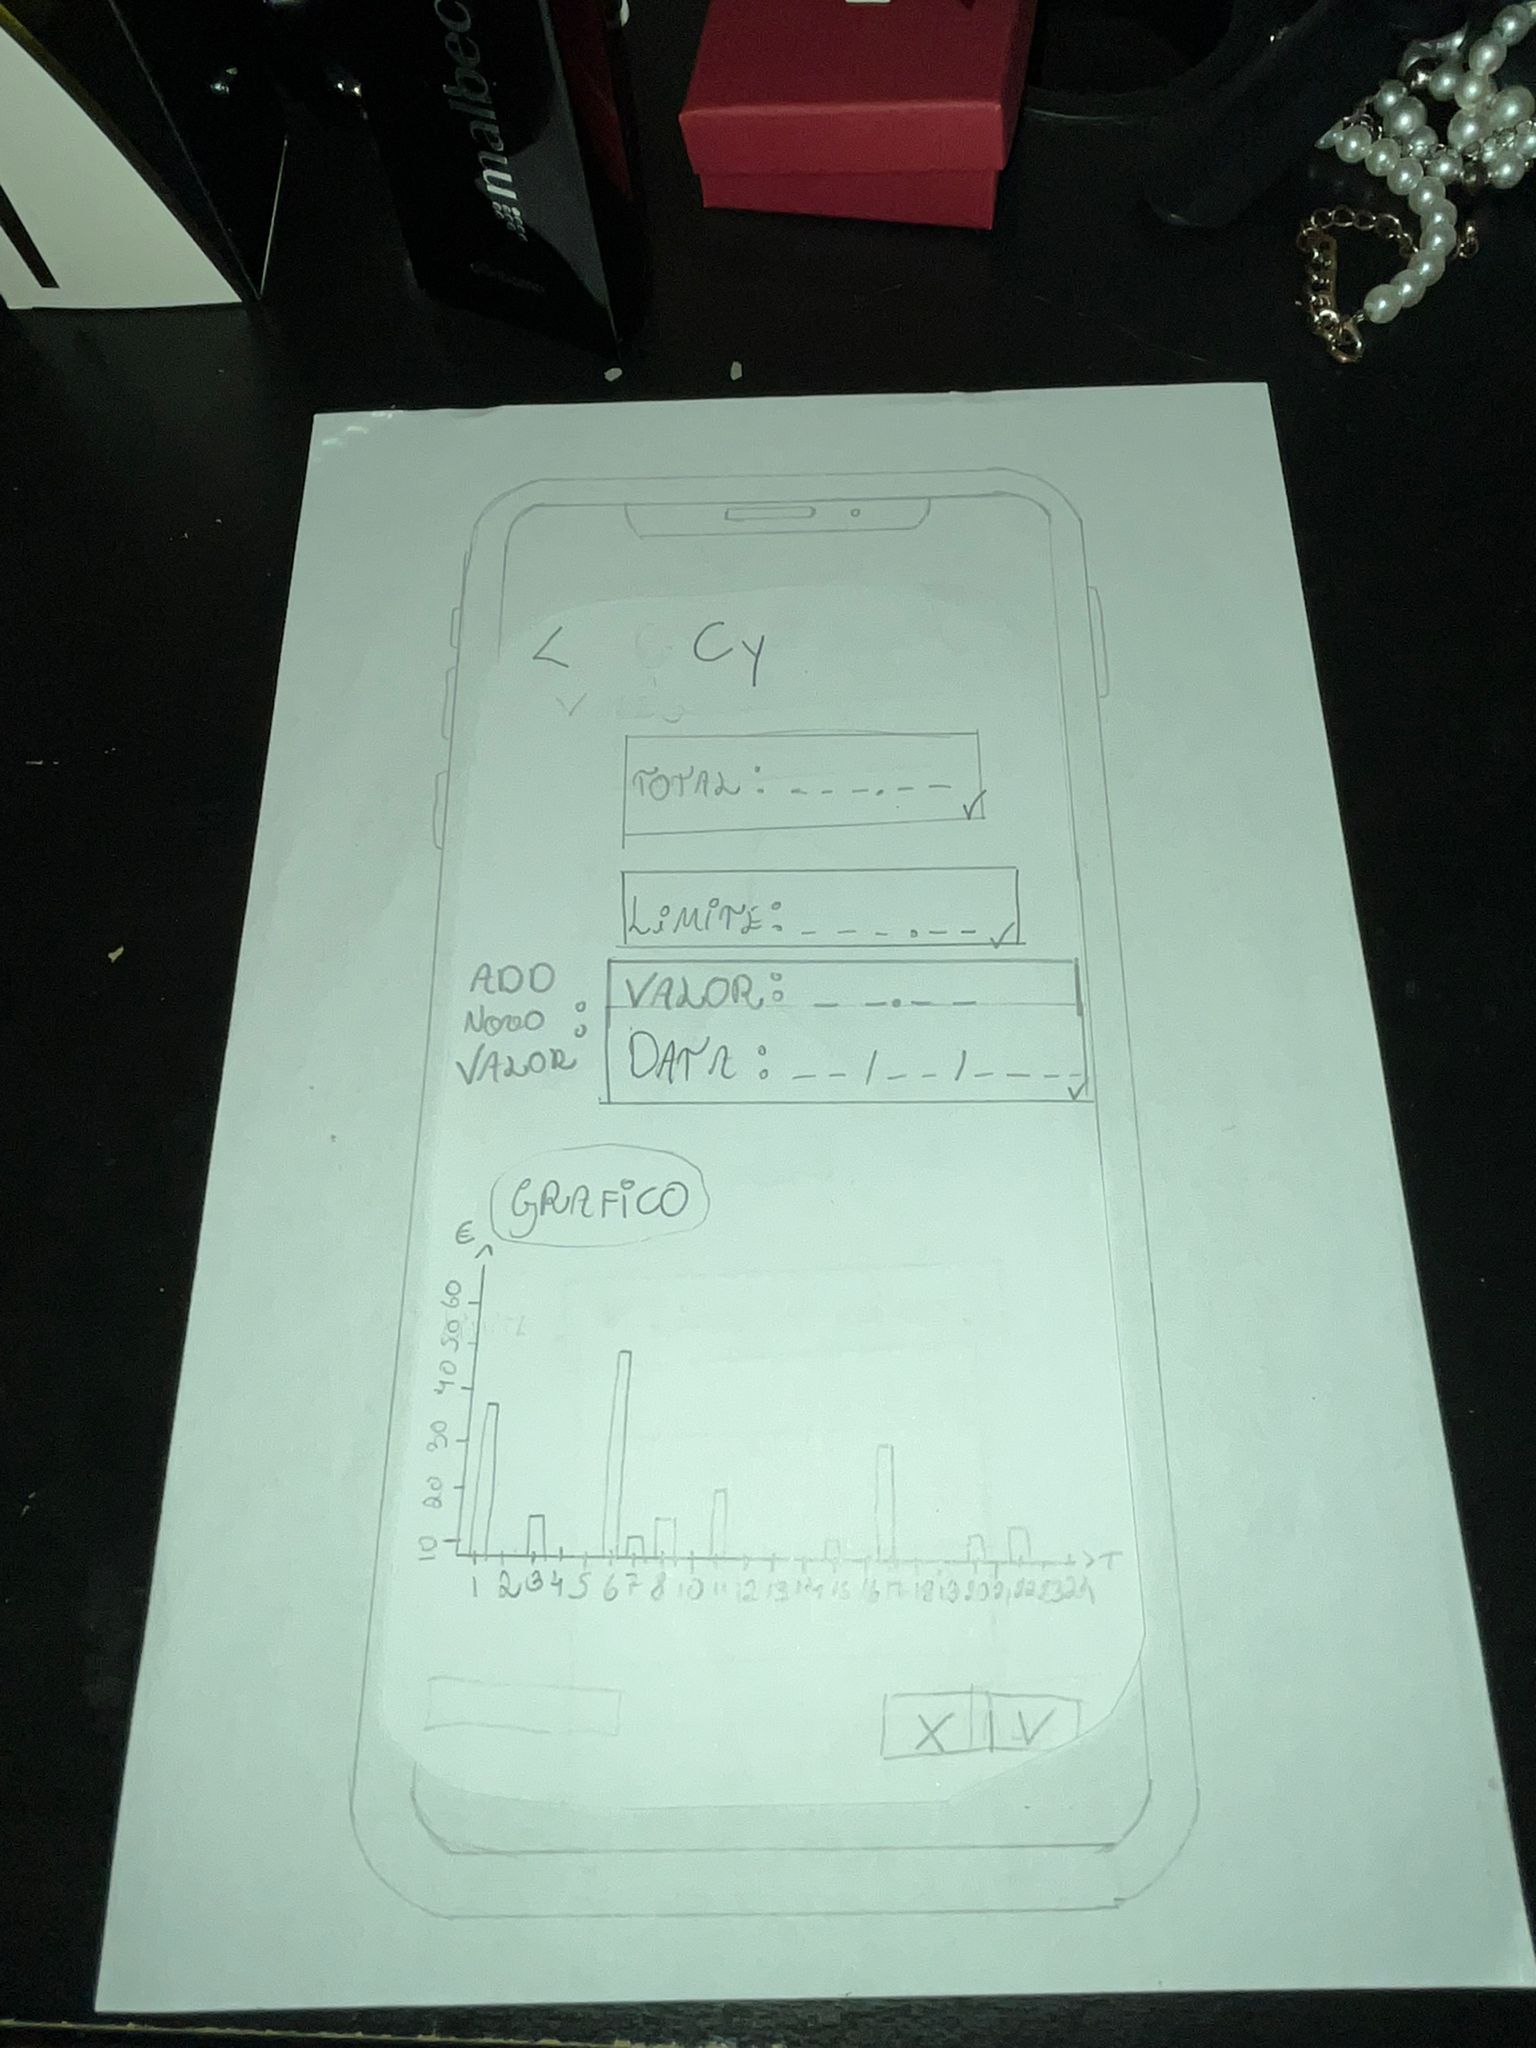 malbec
< Cy
TOTAL: _ _ _._ _
LIMITE: _ _ _._ _
ADD
NOVO :
VALOR
VALOR: _ _._ _
DATA: _ _/_ _/_ _ _ _
GRAFICO
€
60
50
40
30
20
10
1 2 3 4 5 6 7 8 10 11 12 13 14 15 16 17 18 19 20 21 22 23 24 > T
X V